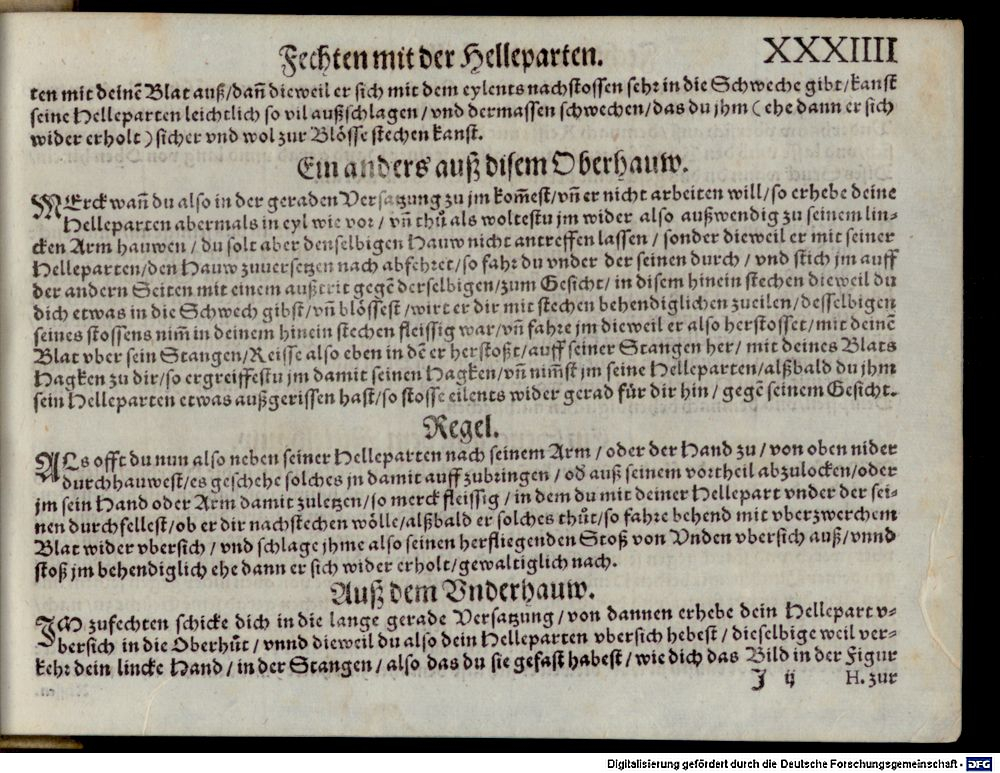 Fechten mit der Helleparten. XXXIIII
ten mit deinē Blat auß/dañ dieweil er sich mit dem eylents nachstossen sehr in die Schweche gibt/kanst
seine Helleparten leichtlich so vil außschlagen/vnd dermassen schwechen/das du jhm (ehe dann er sich
wider erholt) sicher vnd wol zur Blösse stechen kanst.
Ein anders auß disem Oberhauw.
MErck wañ du also in der geraden Versatzung zu jm kom̃est/vñ er nicht arbeiten will/so erhebe deine
Helleparten abermals in eyl wie vor/ vñ thů als woltestu jm wider also außwendig zu seinem lin⸗
cken Arm hauwen/ du solt aber denselbigen Hauw nicht antreffen lassen/ sonder dieweil er mit seiner
Helleparten/den Hauw zuuersetzen nach abfehret/so fahr du vnder der seinen durch/ vnd stich jm auff
der andern Seiten mit einem außtrit gegē derselbigen/zum Gesicht/ in disem hinein stechen dieweil du
dich etwas in die Schwech gibst/vñ blössest/wirt er dir mit stechen behendiglichen zueilen/desselbigen
seines stossens nim̃ in deinem hinein stechen fleissig war/vñ fahre jm dieweil er also herstosset/mit deinē
Blat vber sein Stangen/Reisse also eben in dē er herstoßt/auff seiner Stangen her/ mit deines Blats
Hagken zu dir/so ergreiffestu jm damit seinen Hagken/vñ nim̃st jm seine Helleparten/alßbald du jhm
sein Helleparten etwas außgerissen hast/so stosse eilents wider gerad für dir hin/ gegē seinem Gesicht.
Regel.
ALs offt du nun also neben seiner Helleparten nach seinem Arm/ oder der Hand zu/ von oben nider
durchhauwest/es geschehe solches jn damit auff zubringen/ od̕ auß seinem vortheil abzulocken/oder
jm sein Hand oder Arm damit zuletzen/so merck fleissig/ in dem du mit deiner Hellepart vnder der sei⸗
nen durchfellest/ob er dir nachstechen wölle/alßbald er solches thůt/so fahre behend mit vberzwerchem
Blat wider vbersich/ vnd schlage jhme also seinen herfliegenden Stoß von Vnden vbersich auß/vnnd
stoß jm behendiglich ehe dann er sich wider erholt/gewaltiglich nach.
Auß dem Vnderhauw.
IM zufechten schicke dich in die lange gerade Versatzung/ von dannen erhebe dein Hellepart v⸗
bersich in die Oberhůt/ vnnd dieweil du also dein Helleparten vbersich hebest/ dieselbige weil ver⸗
kehr dein lincke Hand/ in der Stangen/ also das du sie gefast habest/ wie dich das Bild in der Figur
J ij H. zur
Digitalisierung gefördert durch die Deutsche Forschungsgemeinschaft - DFG